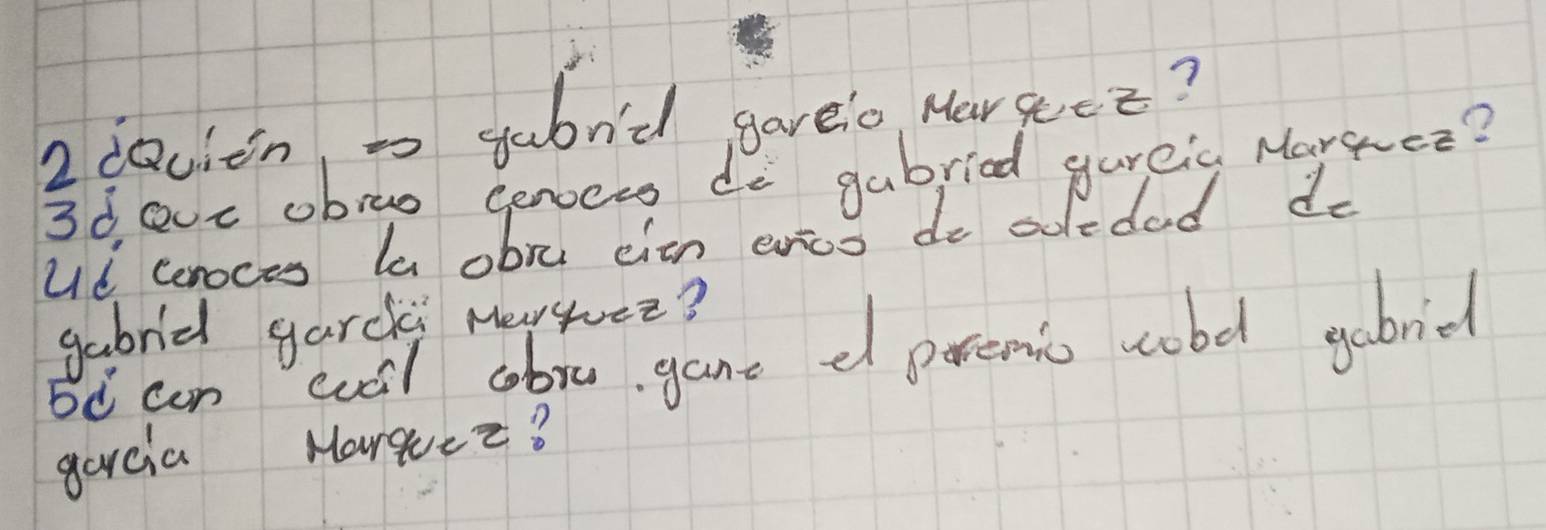 2 ¿Quién es gabriel garcia Marquez?
3 ¿Que obras conoces de gabriel garcia Marquez?
4 ¿ conoces la obra cien años de soledad de
gabriel garcia Marquez?
5 ¿ con cuál obra gano el premio nobel gabriel
garcia Marquez?